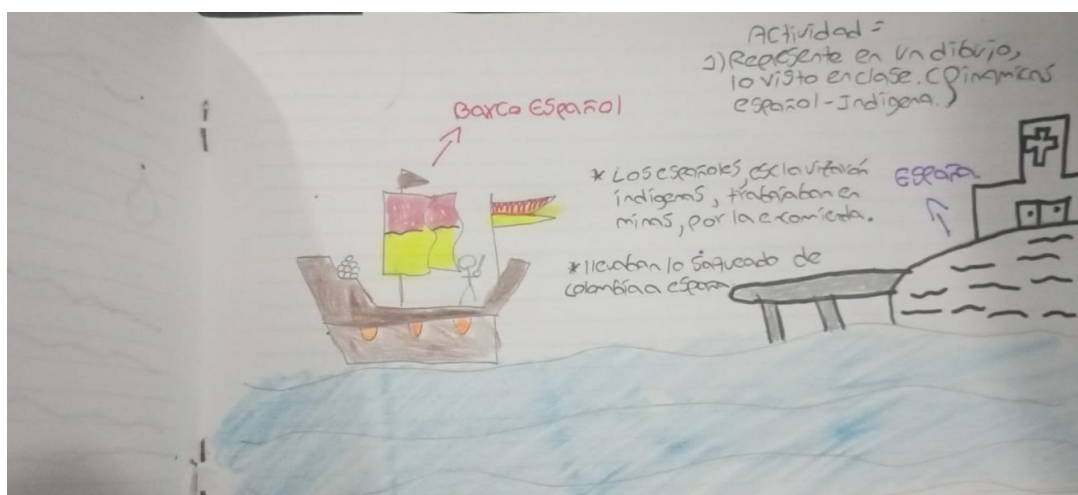 Actividad =
1) Represente en un dibujo,
lo visto en clase. (Dinamicas
español-Indigena.)
Barco Español
* Los españoles, esclavizarón
indigenas, trabajaban en
minas, por la encomienda.
España
* llevaban lo saqueado de
colombia a españa